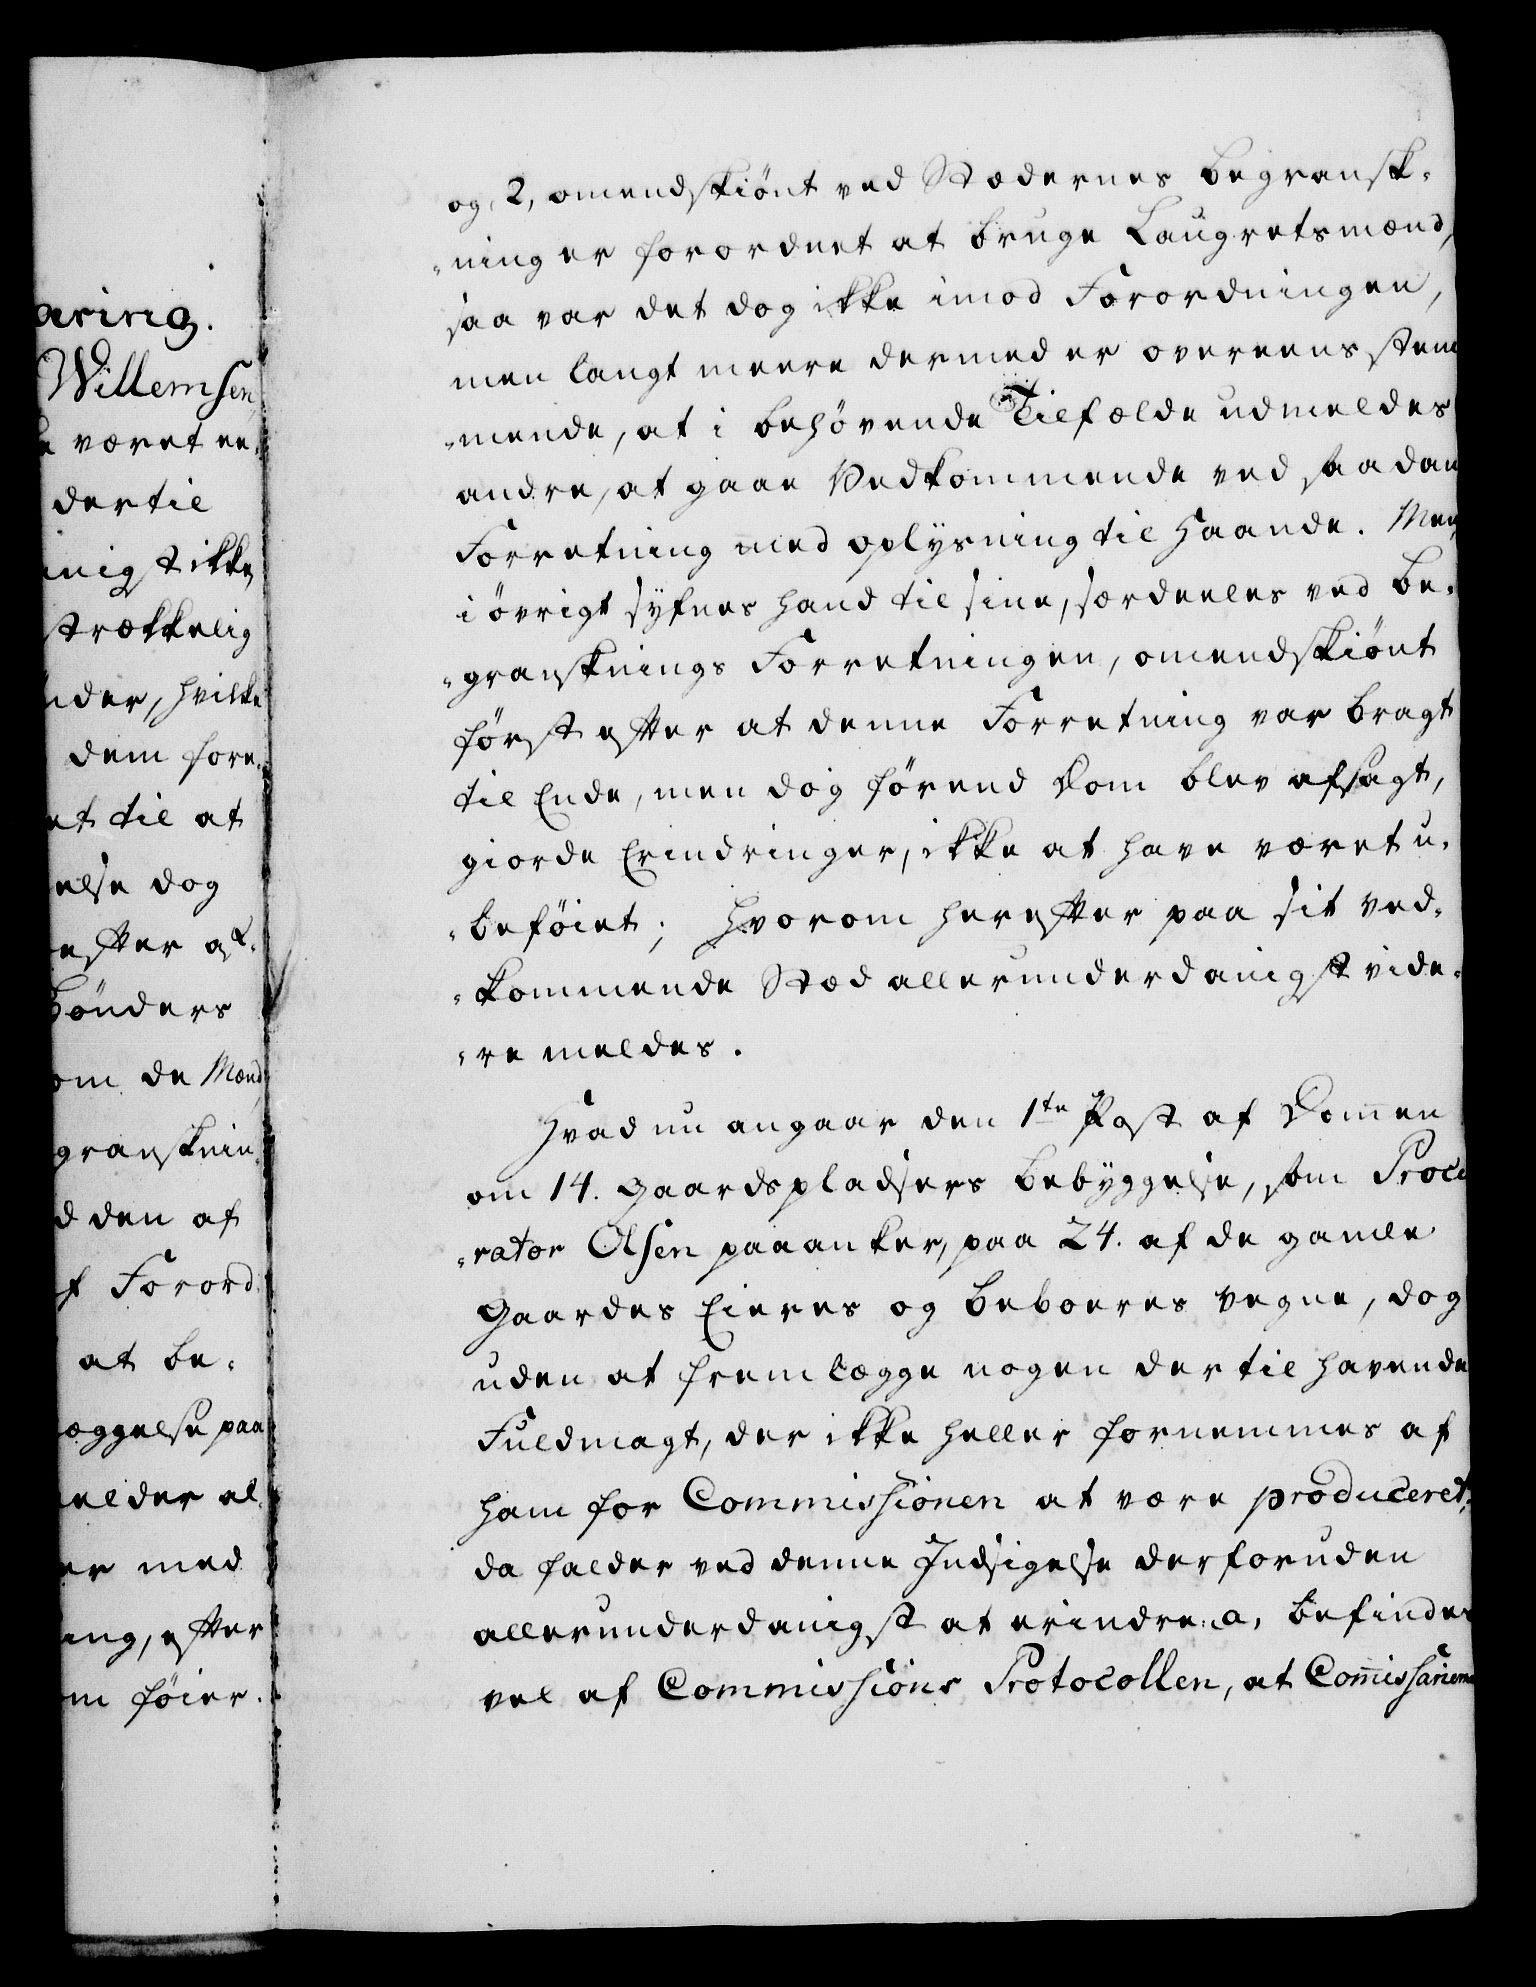 aring.
Willemsen,
været ee-
dertil
inigst ikke
strækkelig
nder, hvilke
dem fore-
et til at
else dog
efter at
bønders
om de Mænd
granskning
d den af
f Forord
at be-
æggelse paa
elder al
er med
ing, efter
m føier.
og, 2, omendskiønt ved Stædernes begransk-
-ning er forordnet at bruge Laugretsmænd,
saa var det dog ikke imod Forordningen,
men langt meere dermed er overeensstem
-mende, at i behøvende Tilfælde udmeldes
andre, at gaae Vedkommende ved saadan
Forretning med oplysning til Haande. Men
i øvrigt syfnes hand til sine, særdeeles ved be-
-gransknings Forretningen, omendskiønt
først efter at denne Forretning var bragt
til Ende, men dog førend Dom blev afsagt,
giorde Erindringer, ikke at have været u-
-beføiet; hvorom herefter paa sit ved-
-kommende Stæd allerunderdanigst vide-
-re meldes.
Hvad nu angaar den 1te Post af Dom̅en
om 14. Gaardspladsers bebyggelse, som Procu
-rator Olsen paaanker, paa 24. af de gamle
Gaardes Eieres og beboeres vegne, dog
uden at fremlægge nogen dertil havende
Fuldmagt, der ikke heller fornemmes af
ham for Commissionen at være produceret;
da falder ved denne Indsigelse derforuden
allerunderdanigst at erindre: a, befindes
vel af Commissions Protocollen, at Com̅issarierne